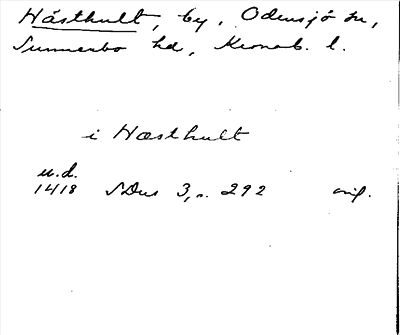 Hästhult, by, Odensjö sn,
Sunnerbo hd, Kronob. l.
i Hæsthult
u.d.
1418 SDns 3, s. 292 orig.